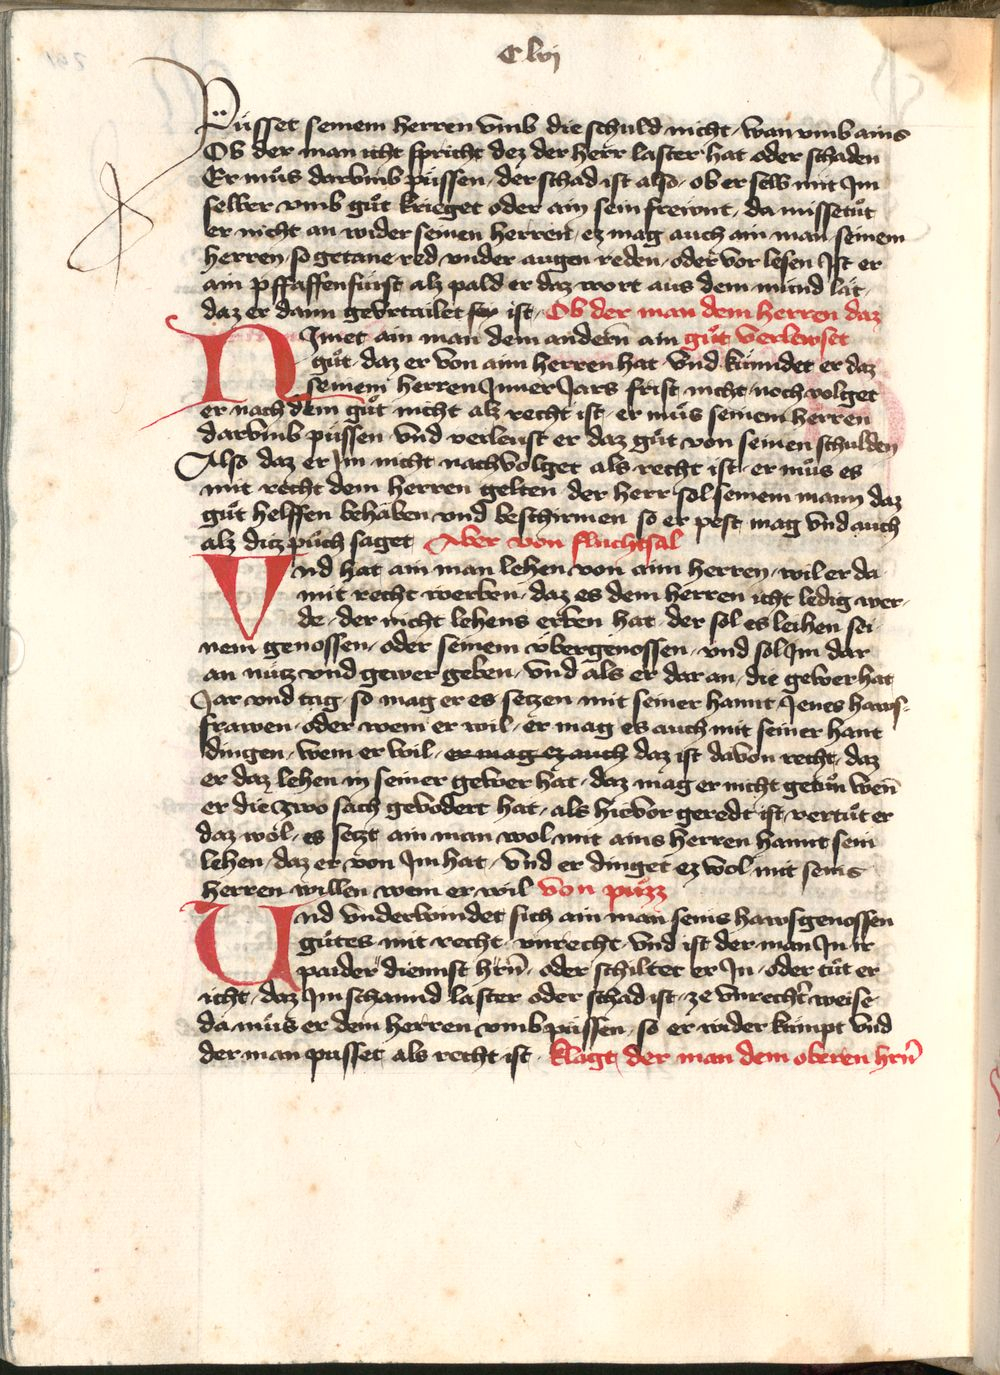 C lvj
Püsset seinem herren vmb die schuld nicht, wan vmb ains
Ob der man icht spricht dez der herr laster hat oder schaden
Er můs darvmb püssen, der schad ist also, ob er selb mit Jm
selber vmb gůt krieget oder ain sein freünt, da missetůt
er nicht an wider seinen herren, ez mag auch ain man seinem
herren so getane red vnder augen reden, oder vor lesen Jst er
ain pfaffenfürst alz pald er daz wort aus dem mund lat
daz er dann gevrtailet ist, Ob der man dem herren daz
Nimet ain man dem andern ain gůt verlewset
gůt daz er von ainn herren hat vnd kündet er daz
seinem herren Jnner Jars frist nicht noch volget
er nach dem gůt nicht alz recht ist, er můs seinem herren
darvmb püssen vnd verleust er daz gůt von seinen schulden
Also daz er Jm nicht nachvolget als recht ist, er můs es
mit recht dem herren gelten der herr sol seinem mann daz
gůt helffen behaben vnd beschirmen so er pest mag vnd auch
alz ditz půch saget Aber von fluchtsal
Vnd hat ain man lehen von ainn herren, wil er da
mit recht werben, daz es dem herren icht ledig wer,
de, der nicht lehens erben hat, der sol es leihen sei
nem genossen, oder seinem vbergenossen, vnd sol Jm dar
an nütz vnd gewer geben, vnd als er dar an, die gewer hat
Jar vnd tag, so mag er es setzen mit seiner hannt Jenes haws-
frawen, oder wem er wil, er mag es auch mit seiner hant
dingen, wem er wil, er mag ez auch daz ist davon recht, daz
er daz lehen in seiner gewer hat, daz mag er nicht getůn wen̄
er die zwo sach gevodert hat, als hievor geredt ist, vertůt er
daz wol, es setzt ain man wol mit ains herren hannt sein
lehen, daz er von Jm hat, vnd er dinget ez wol mit seins
herren willen wem er wil von püzz
Und vnderwindet sich ain man seins hawsgenossen
gůtes mit recht, vnrecht, vnd ist der man Jn ir
paider diennst hrn̄, oder schiltet er Jn, oder tůt er
icht, daz Jm schannd laster oder schad ist, ze vnrecht̄ weise
da můs er dem herren vmb püssen, so er wider kümpt vnd
der man püsset als recht ist, klagt, der man dem oberen hrn̄